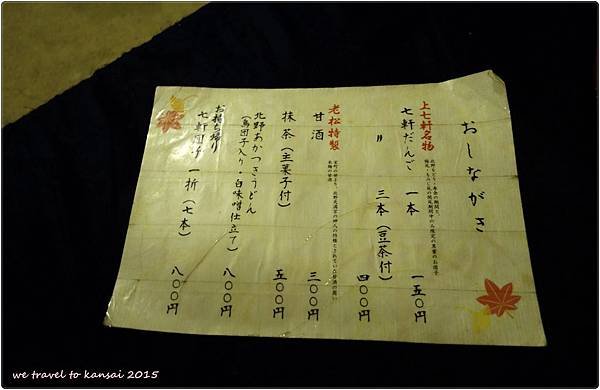 おしながき
上七軒名物
七軒だんご 一本 一五〇円
〃 三本(豆茶付) 四〇〇円
老松特製
甘酒 三〇〇円
抹茶(主菓子付) 五〇〇円
北野あかつきうどん
(鳥団子入り・白味噌仕立て) 八〇〇円
お持ち帰り
七軒団子 一折(七本) 八〇〇円
we travel to kansai 2015